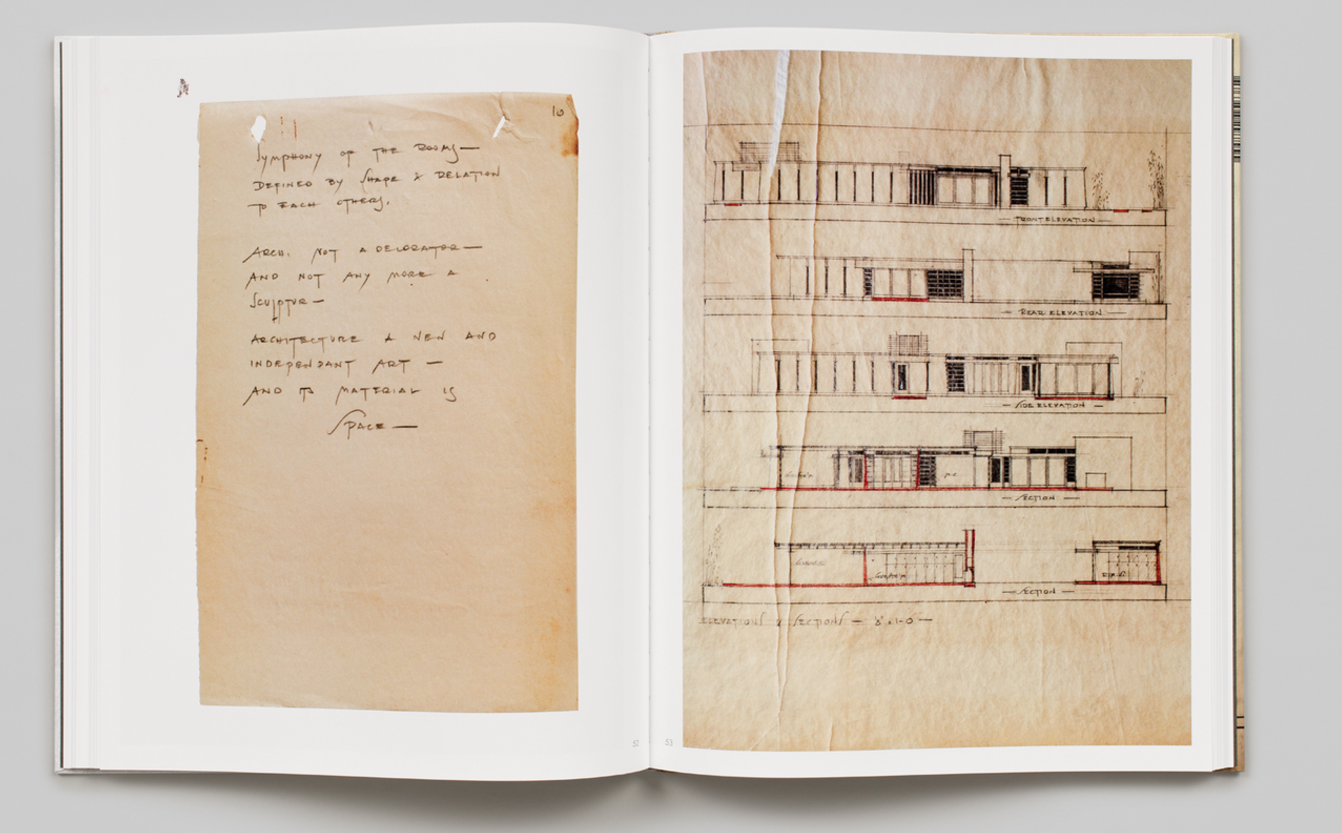 10
Symphony of the Rooms —
Defined by Shape & Relation
to Each others.
Arch. not a decorator —
and not any more a
sculptur —
Architecture a new and
independant art —
and its material is
Space —
52
53
— Front Elevation —
— Rear Elevation —
— Side Elevation —
— Section —
— Section —
Elevations & Sections —